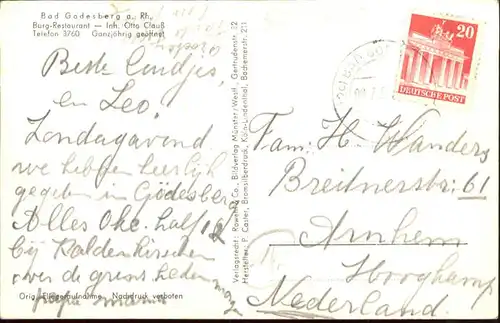 Bad Godesberg a. Rh.
Burg-Restaurant — Inh. Otto Clauß
Telefon 3760 Ganzjährig geöffnet
Beste
en Leo,
Zondagavond
we hebben heerlijk
gegeten in Godesberg
Alles Oke. half 12
bij Kaldenkirchen
over de grens heden
Orig. Fliegeraufnahme Nachdruck verboten
Verlagsrecht: & Co., Bildverlag Münster/Westf., Gertrudenstr. 12
Hersteller: F. Caster, Bromsilberdruck, Köln-Lindenthal, Bachemerstr. 211
20
DEUTSCHE POST
Fam: H Wanders
Breitnerstr: 61
Arnhem
Hooghkamp
Nederland.